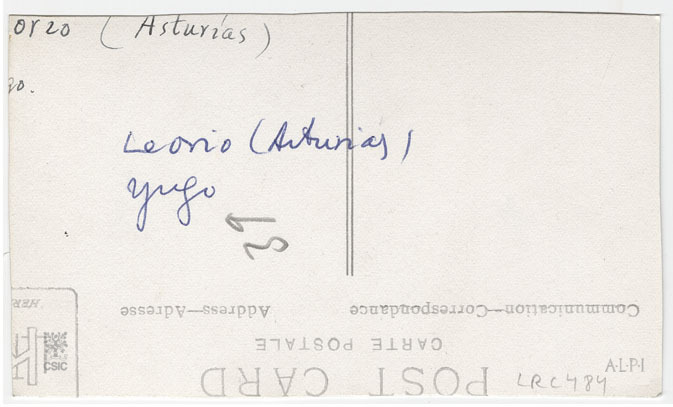 orzo (Asturias)
go.
Leorio (Asturias)
yugo
Communication—Correspondance
Address—Adresse
CARTE POSTALE
POST CARD
CSIC
A·L·P·I
LRC484